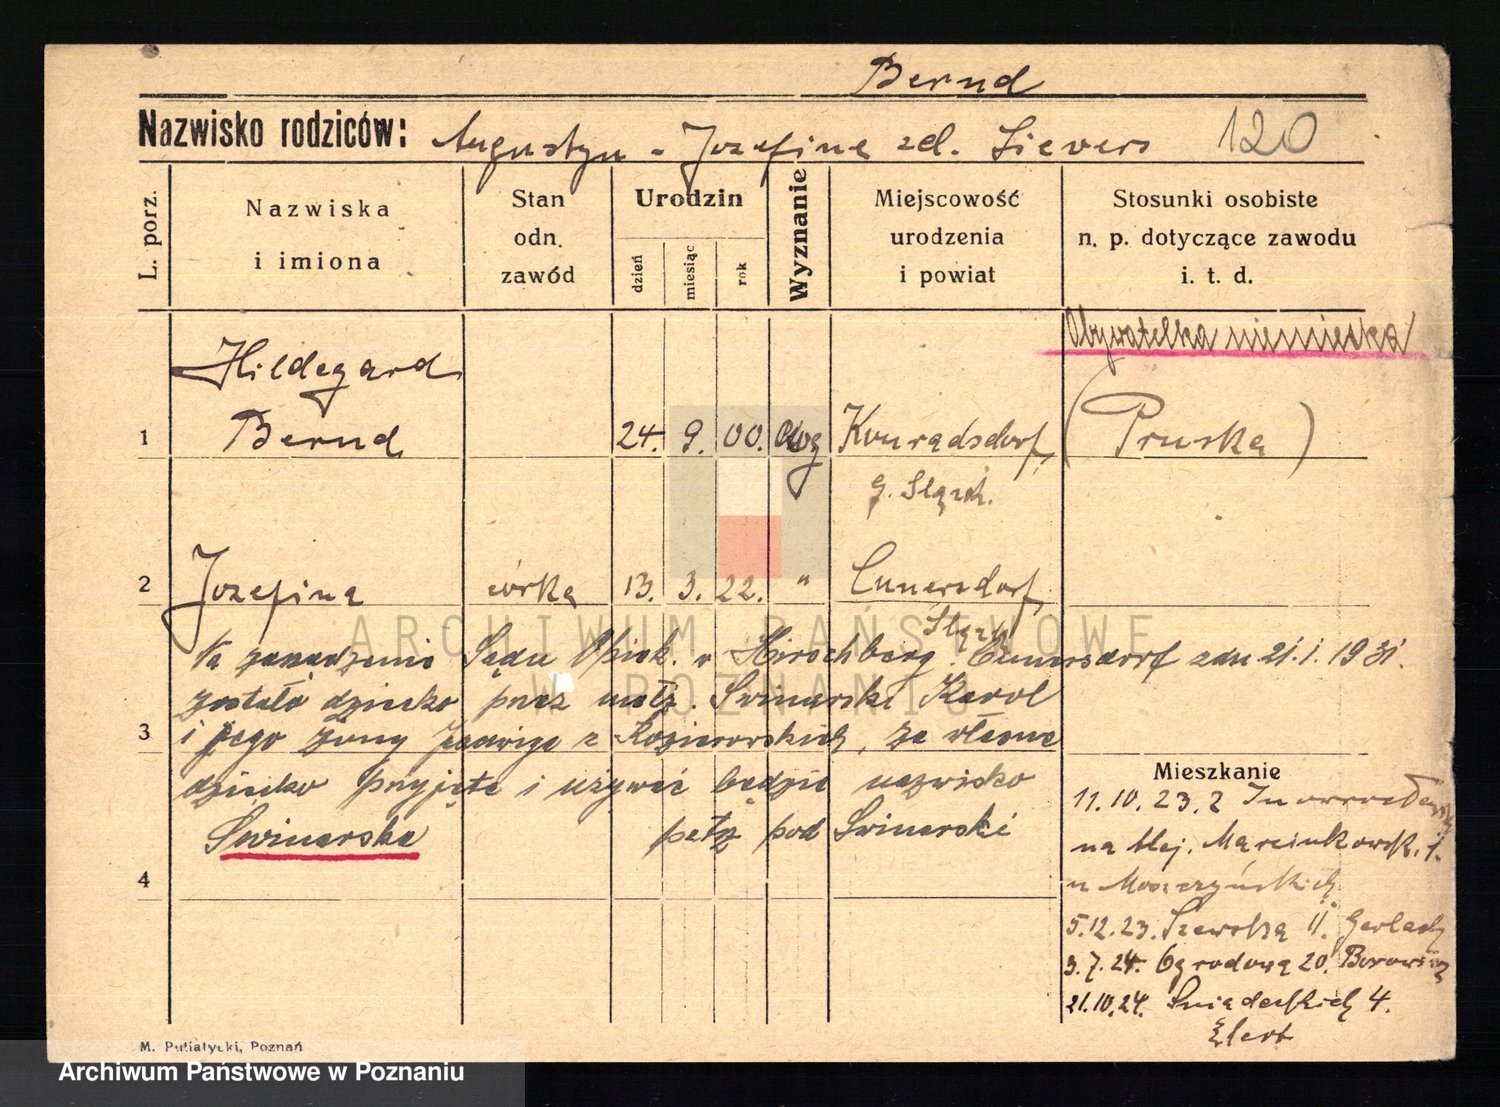 Bernd
Nazwisko rodziców: Augustyn - Jozefina zd. Sievers 120
L. porz.
Nazwiska
i imiona
Stan
odn.
zawód
Urodzin
dzień
miesiąc
rok
Wyznanie
Miejscowość
urodzenia
i powiat
Stosunki osobiste
n. p. dotyczące zawodu
i. t. d.
Obywatelka niemiecka
Hildegard
1 Bernd 24. 9. 00. Konradsdorf (Pruska)
g. Sląsk.
2 Jozefina córka 13. 3. 22. " Cunersdorf
Śląsk
Na zarządzenie Sądu Opiek. v Hirschberg. Cunnersdorf z dn 21.1.1931.
zostało dziecko przez małż. Swinarski Karol
3 i jego żony Jadwiga z Kozierowskich, za własne
dziecko przyjęte i używać będzie nazwisko
Swinarska patrz pod Swinarski
4
Mieszkanie
11. 10. 23. z
na Alej. Marcinkowsk. 1.
u Moszczyńskich
5.12.23. Szewska 11. Gerlach
3.7.24. Ogrodowa 20.
21.10.24. Śniadeckich 4.
Elert
M. Putiatycki, Poznań
ARCHIWUM PAŃSTWOWE
W POZNANIU
Archiwum Państwowe w Poznaniu